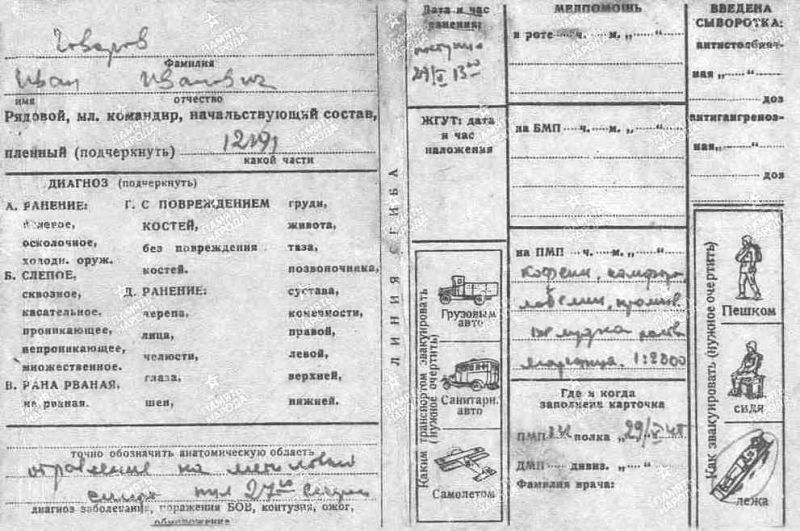 Говоров
Фамилия
Иван Иванович
имя отчество
Рядовой, мл. командир, начальствующий состав,
пленный (подчеркнуть)
какой части
ДИАГНОЗ (подчеркнуть)
А. РАНЕНИЕ:
пулевое,
осколочное,
холодн. оруж.
Б. СЛЕПОЕ,
сквозное,
касательное.
проникающее,
непроникающее,
множественное.
В. РАНА РВАНАЯ,
не рваная.
Г. С ПОВРЕЖДЕНИЕМ
КОСТЕЙ,
без повреждения
костей.
Д. РАНЕНИЕ:
черепа,
лица,
челюсти,
глаза,
шеи,
груди,
живота,
таза,
позвоночника,
сустава,
конечности,
правой,
левой,
верхней,
нижней.
точно обозначить анатомическую область
отравление
диагноз заболевания, поражения БОВ, контузия, ожог,
обморожение
ЛИНИЯ СГИБА
Дата и час
ранения:
29/V 13 00
ЖГУТ: дата
и час
наложения
Каким транспортом эвакуировать
(нужное очертить)
Грузовым
авто
Санитарн.
авто
Самолетом
МЕДПОМОЩЬ
в роте ч. м. „ “
на БМП ч. м. „ “
на ПМП ч. м. „ “
Кофеин, камфора,
лобелин, промыв.
желудка раств.
марганца. 1:2000
Где и когда
заполнена карточка
ПМП полка „29/V 45
ДМП дивиз. „ “
Фамилия врача:
ВВЕДЕНА
СЫВОРОТКА:
антистолбняч-
ная „ “
доз
антигангреноз-
ная „ “
доз
Как эвакуировать (нужное очертить)
Пешком
сидя
лежа
ПАМЯТЬ НАРОДА